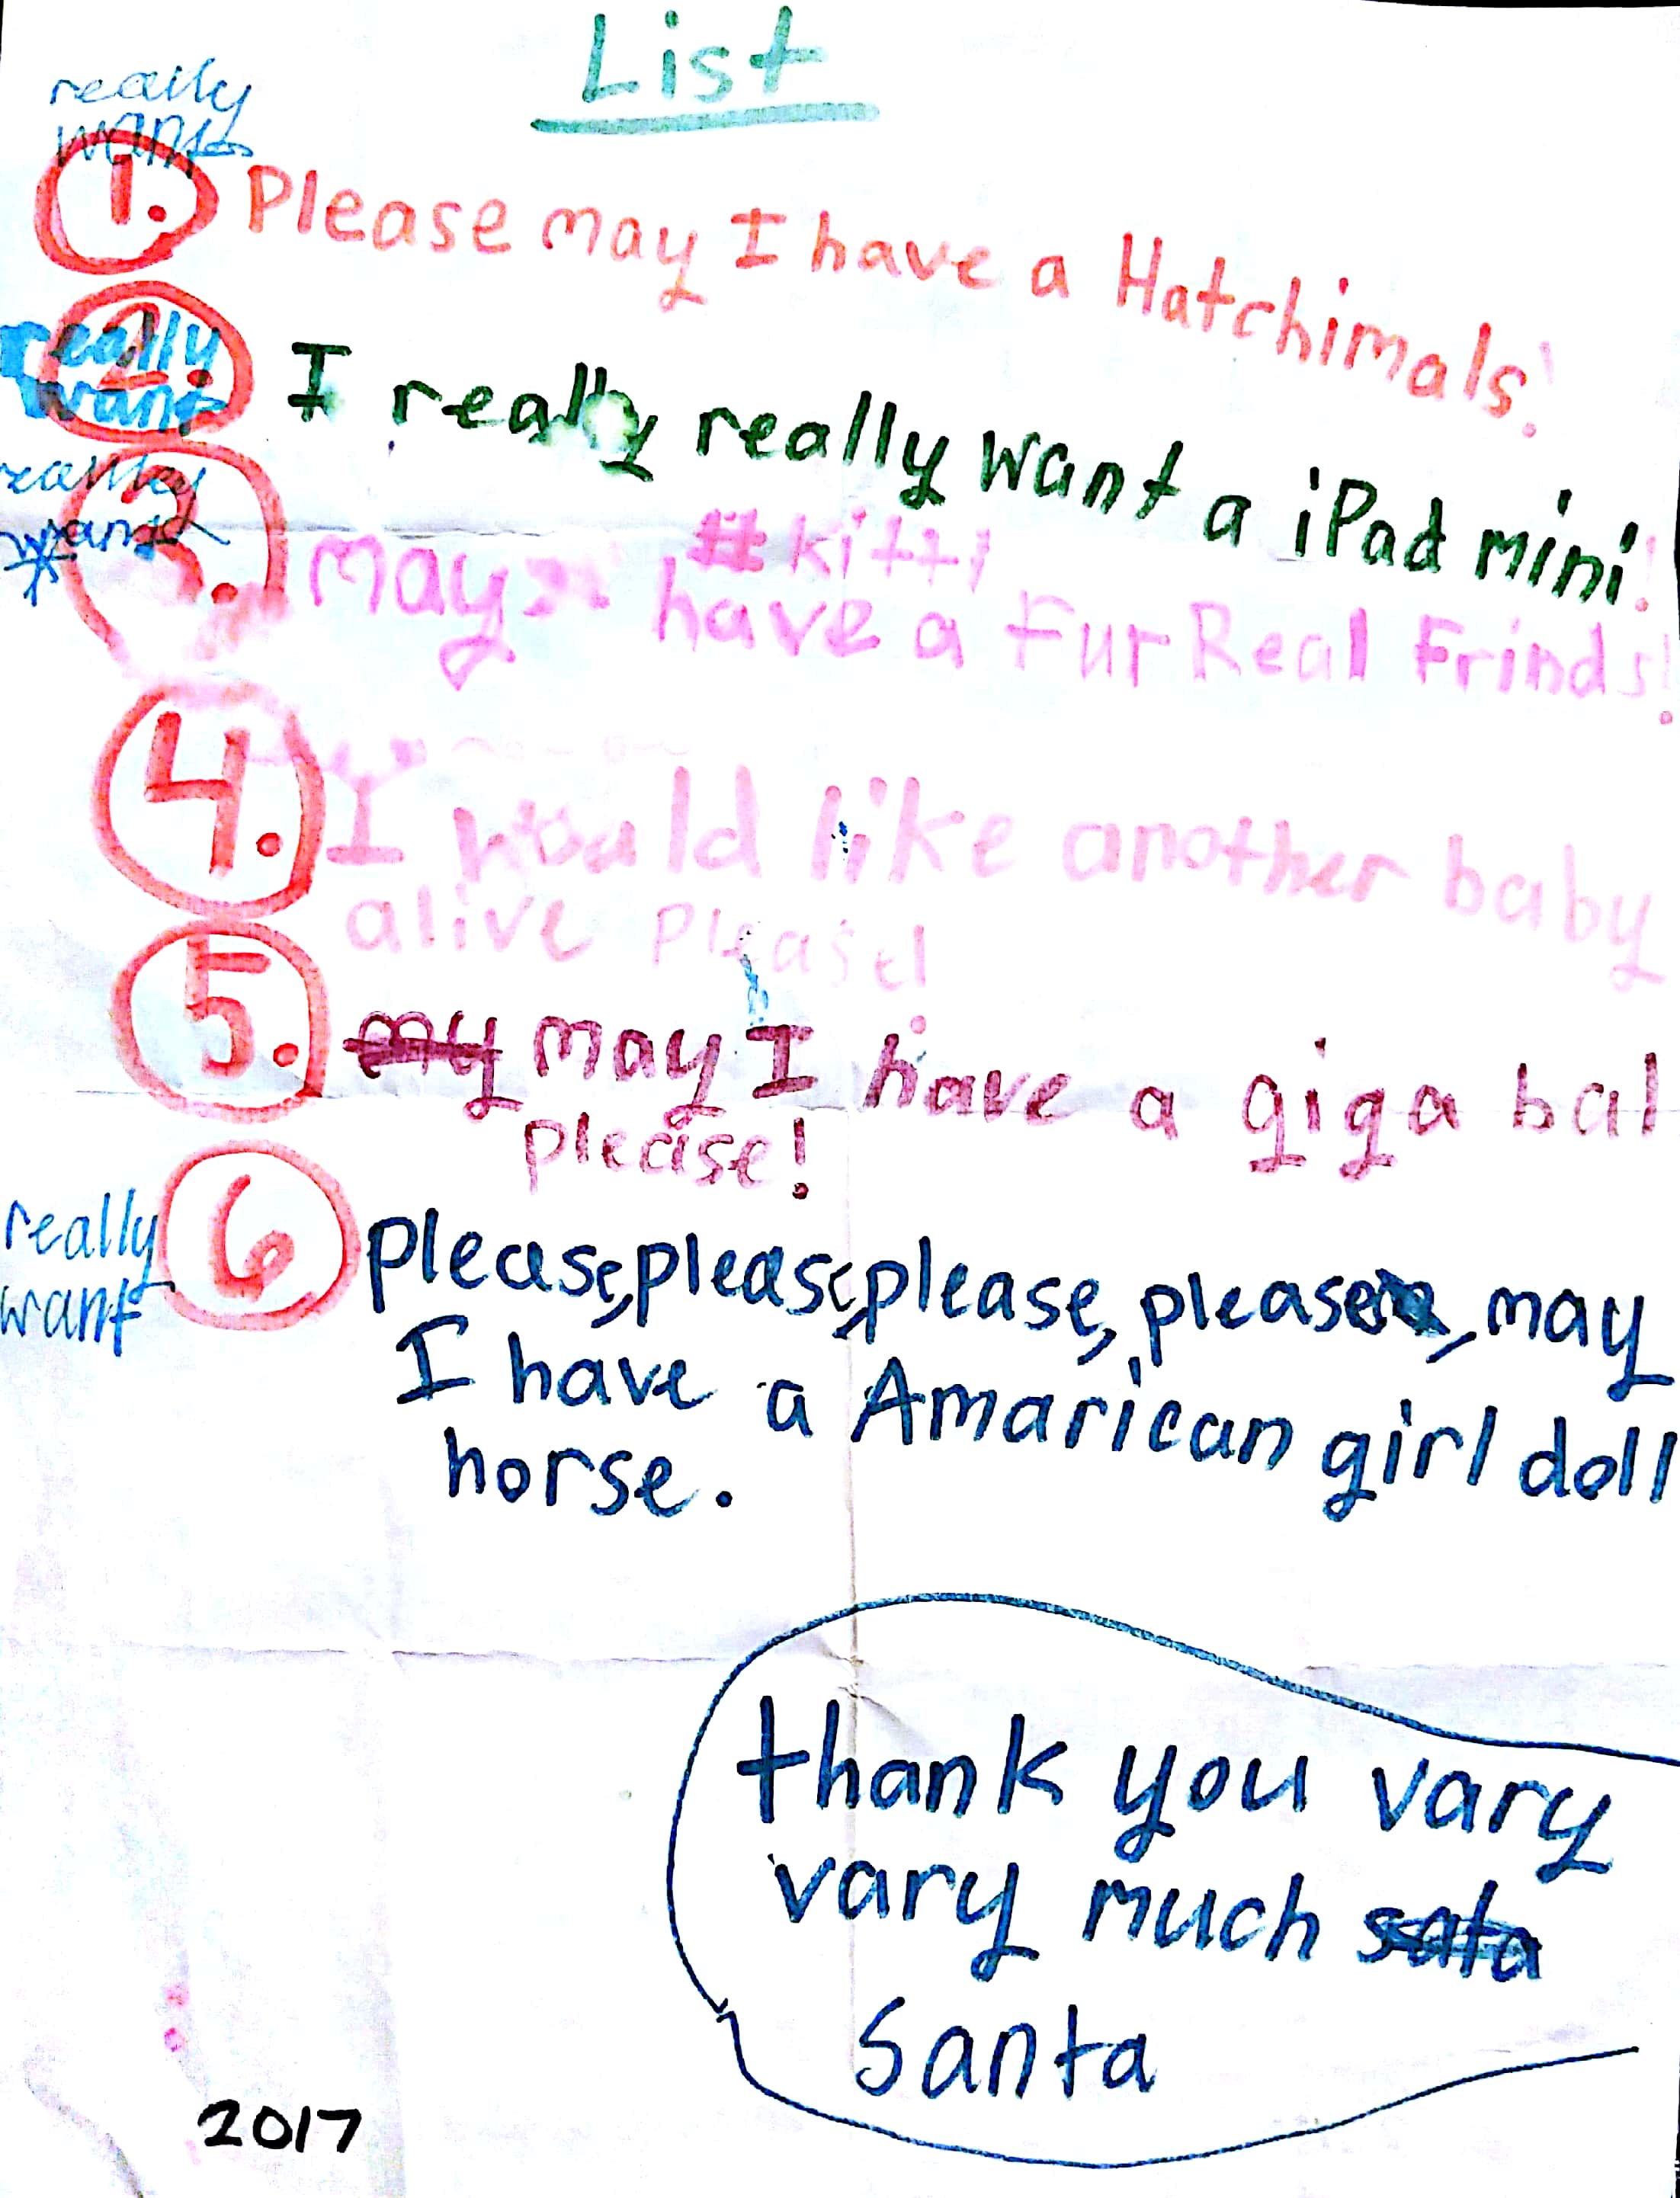 List
really
want
1. Please may I have a Hatchimals!
really
want
2. I really really want a iPad mini!
really
want
#kitti
3. may have a Fur Real Frinds!
4. I would like another baby
alive please!
5. my may I have a giga bal
please!
really
want
6 please, please, please, please, may
I have a Amarican girl doll
horse.
thank you vary
vary much sata
Santa
2017